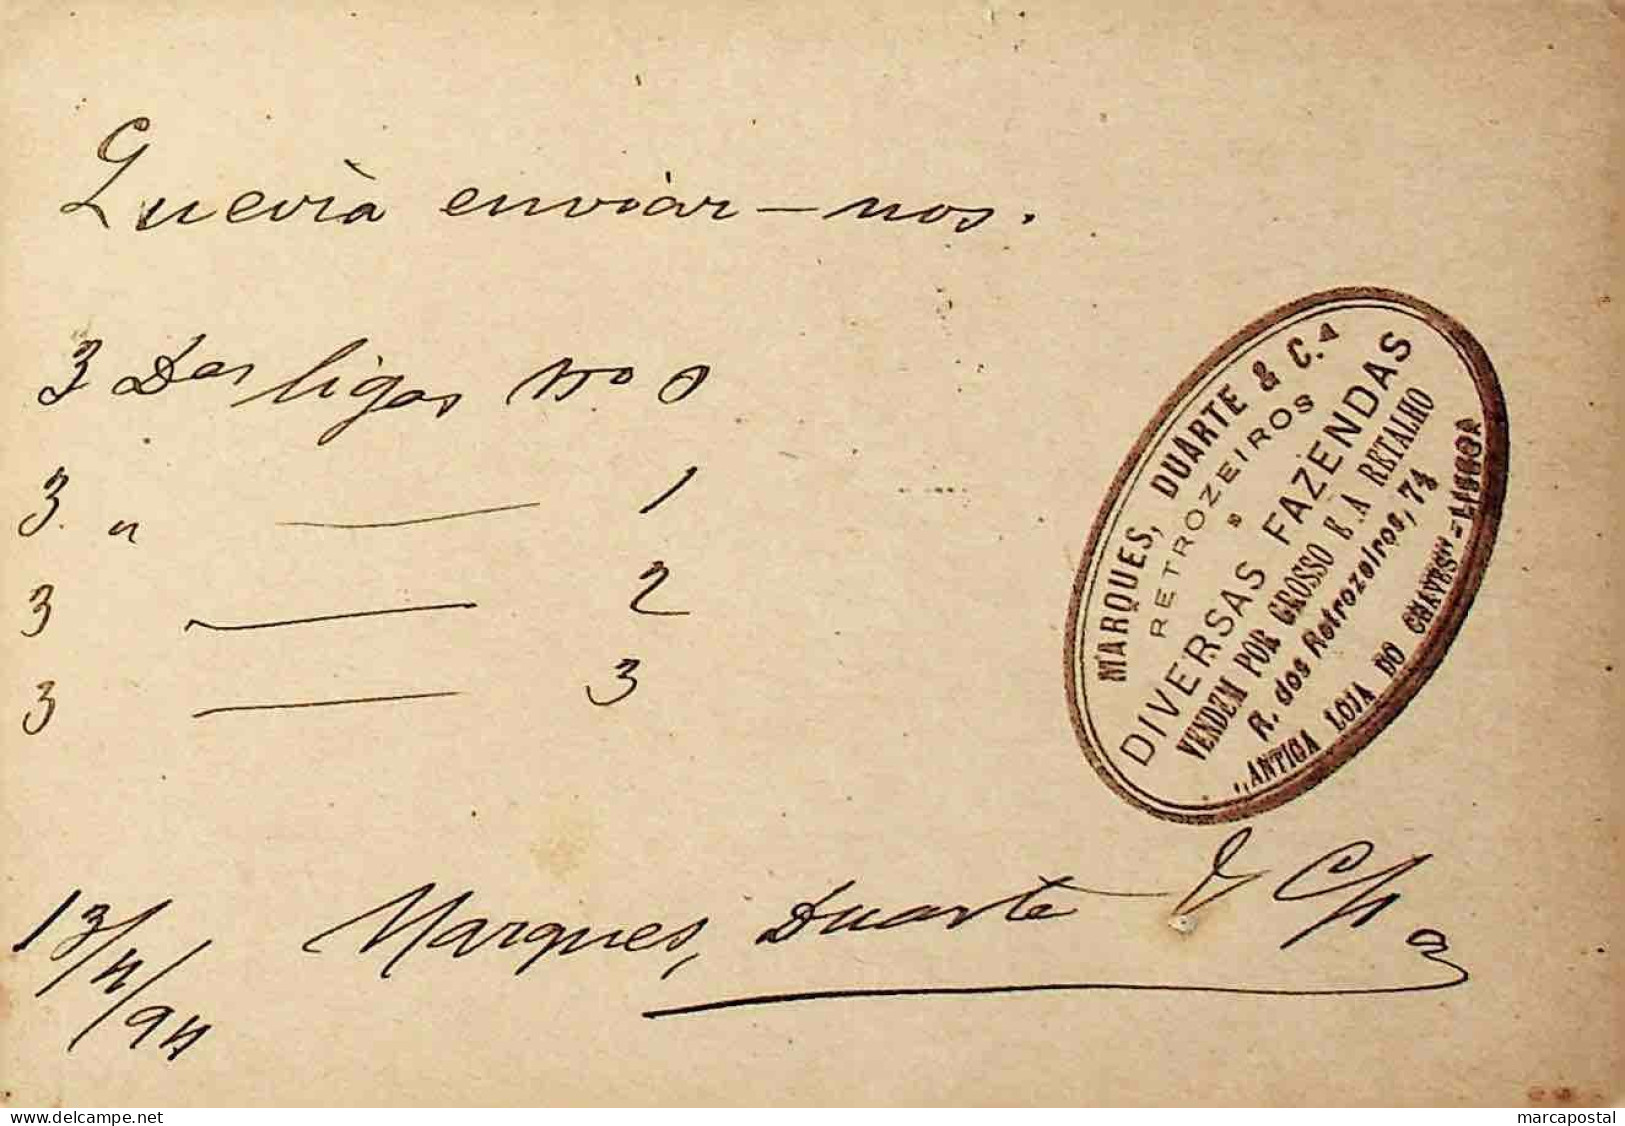 Queria enviar-nos.
3 Das ligas no 0
3 " — 1
3 — 2
3 — 3
MARQUES, DUARTE & C.ª
RETROZEIROS
DIVERSAS FAZENDAS
VENDEM POR GROSSO E A RETALHO
R. dos Retrozeiros,
"ANTIGA LOJA DO CHAVES"=LISBOA
13/4/94
Marques, Duarte & Cpª
delcampe.net
marcapostal